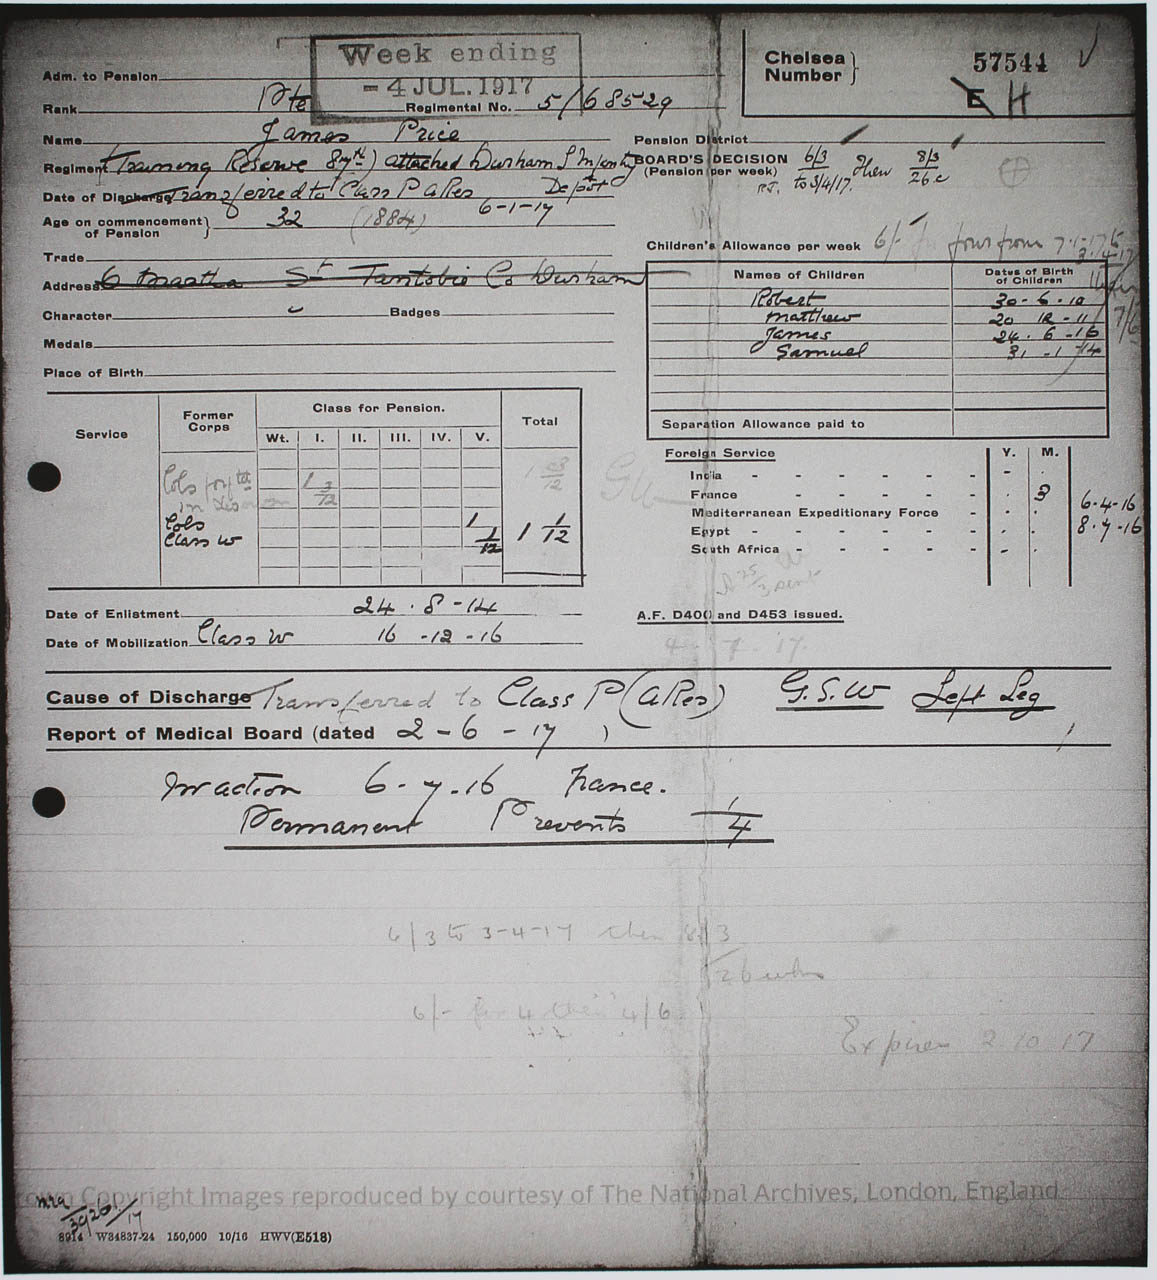 Week ending
- 4 JUL. 1917
Chelsea Number } 57544
E H
Adm. to Pension
Rank Pte Regimental No. 5/68529
Name James Price
Pension District
Regiment Training Reserve 87th) attached Durham L Infantry
Depot
BOARD'S DECISION 6/3 then 8/3
(Pension per week) to 3/4/17. 26
Date of Discharge Transferred to Class P A Res 6-1-17
Age on commencement of Pension } 32 (1884)
Children's Allowance per week 6/- for four from 7.1.17 to 3.4.17
Trade
Address 6 Martha St Tantobie Co Durham
Names of Children Dates of Birth of Children
Robert 30-6-10
Matthew 20 12-11
James 24.6-16
Samuel 31-1-14
Character Badges
Medals
Place of Birth
Separation Allowance paid to
Service Former Corps Class for Pension. Total
Wt. I. II. III. IV. V.
Cols 1 3/12
Cols 1
Class W 1/12 1 1/12
Foreign Service Y. M.
India - - - - - -
France - - - - - 3 6-4-16
Mediterranean Expeditionary Force - 8.7-16
Egypt - - - - - -
South Africa - - - - -
Date of Enlistment 24.8-14
Date of Mobilization Class W 16-12-16
A.F. D400 and D453 issued.
4. 7. 17.
Cause of Discharge Transferred to Class P (A Res) G.S.W Left Leg
Report of Medical Board (dated 2-6-17 )
In action 6-7.16 France.
Permanent Prevents 1/4
6/3 to 3-4-17 then 8/3
26 wks
6/- for 4 then 4/6
Expires 2 10 17
rown Copyright Images reproduced by courtesy of The National Archives, London, England
8914 W34837-24 150,000 10/16 HWV(E518)